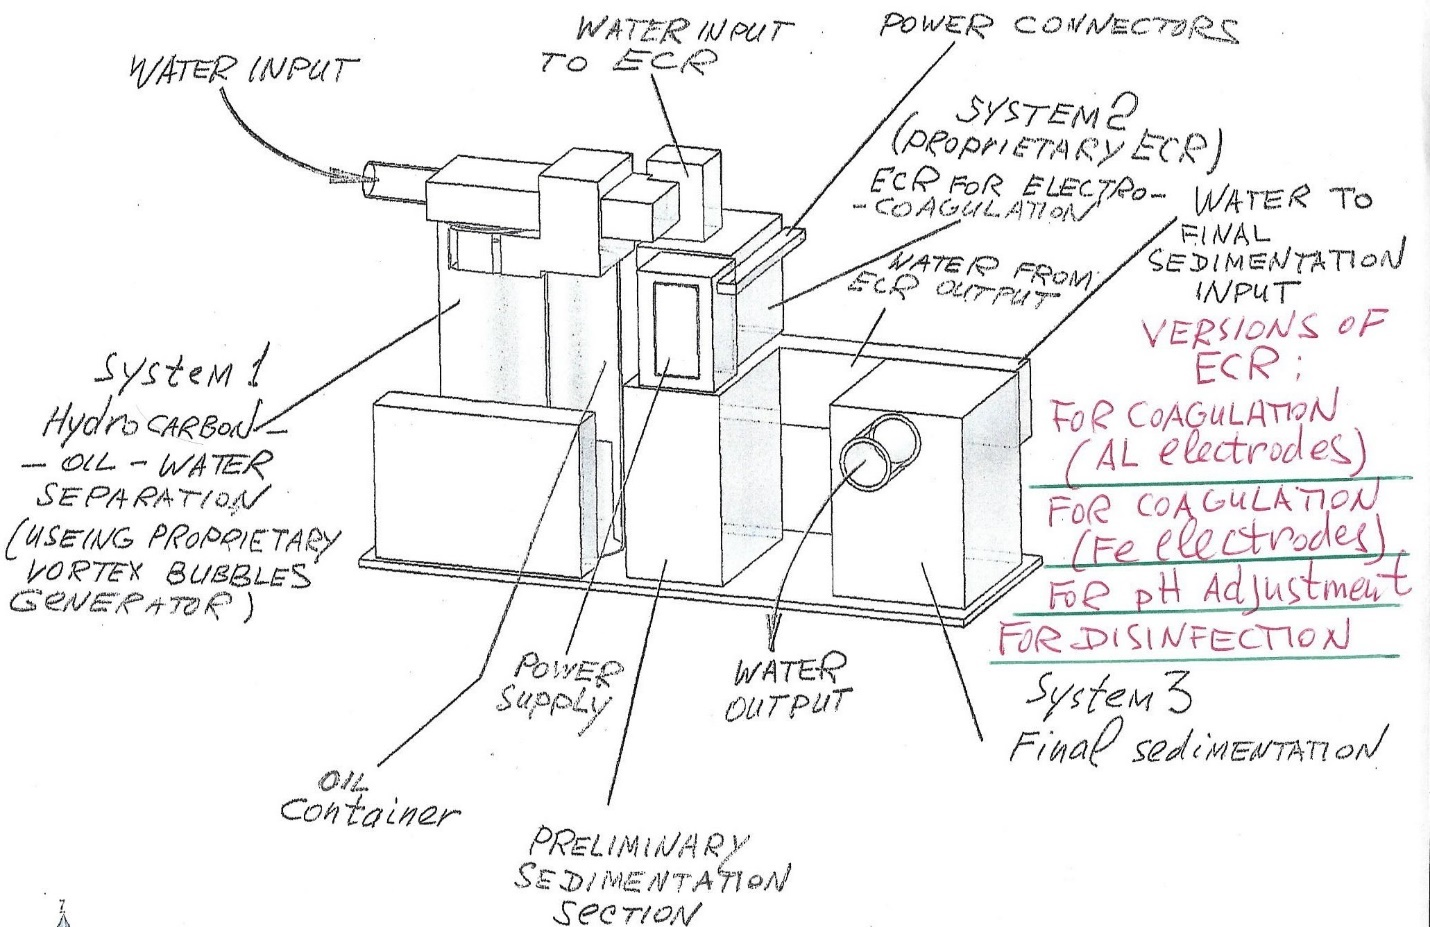 WATER INPUT
WATER INPUT
TO ECR
POWER CONNECTORS
SYSTEM 2
(PROPRIETARY ECR)
ECR FOR ELECTRO-
-COAGULATION
WATER TO
FINAL
SEDIMENTATION
INPUT
WATER FROM
ECR OUTPUT
VERSIONS OF
ECR:
FOR COAGULATION
(AL electrodes)
FOR COAGULATION
(Fe electrodes)
FOR pH Adjustment
FOR DISINFECTION
System 1
HydroCARBON-
-OIL-WATER
SEPARATION
(USEING PROPRIETARY
VORTEX BUBBLES
GENERATOR)
POWER
Supply
WATER
OUTPUT
System 3
Final sediMENTATION
OIL
Container
PRELIMINARY
SEDIMENTATION
SECTION
Z